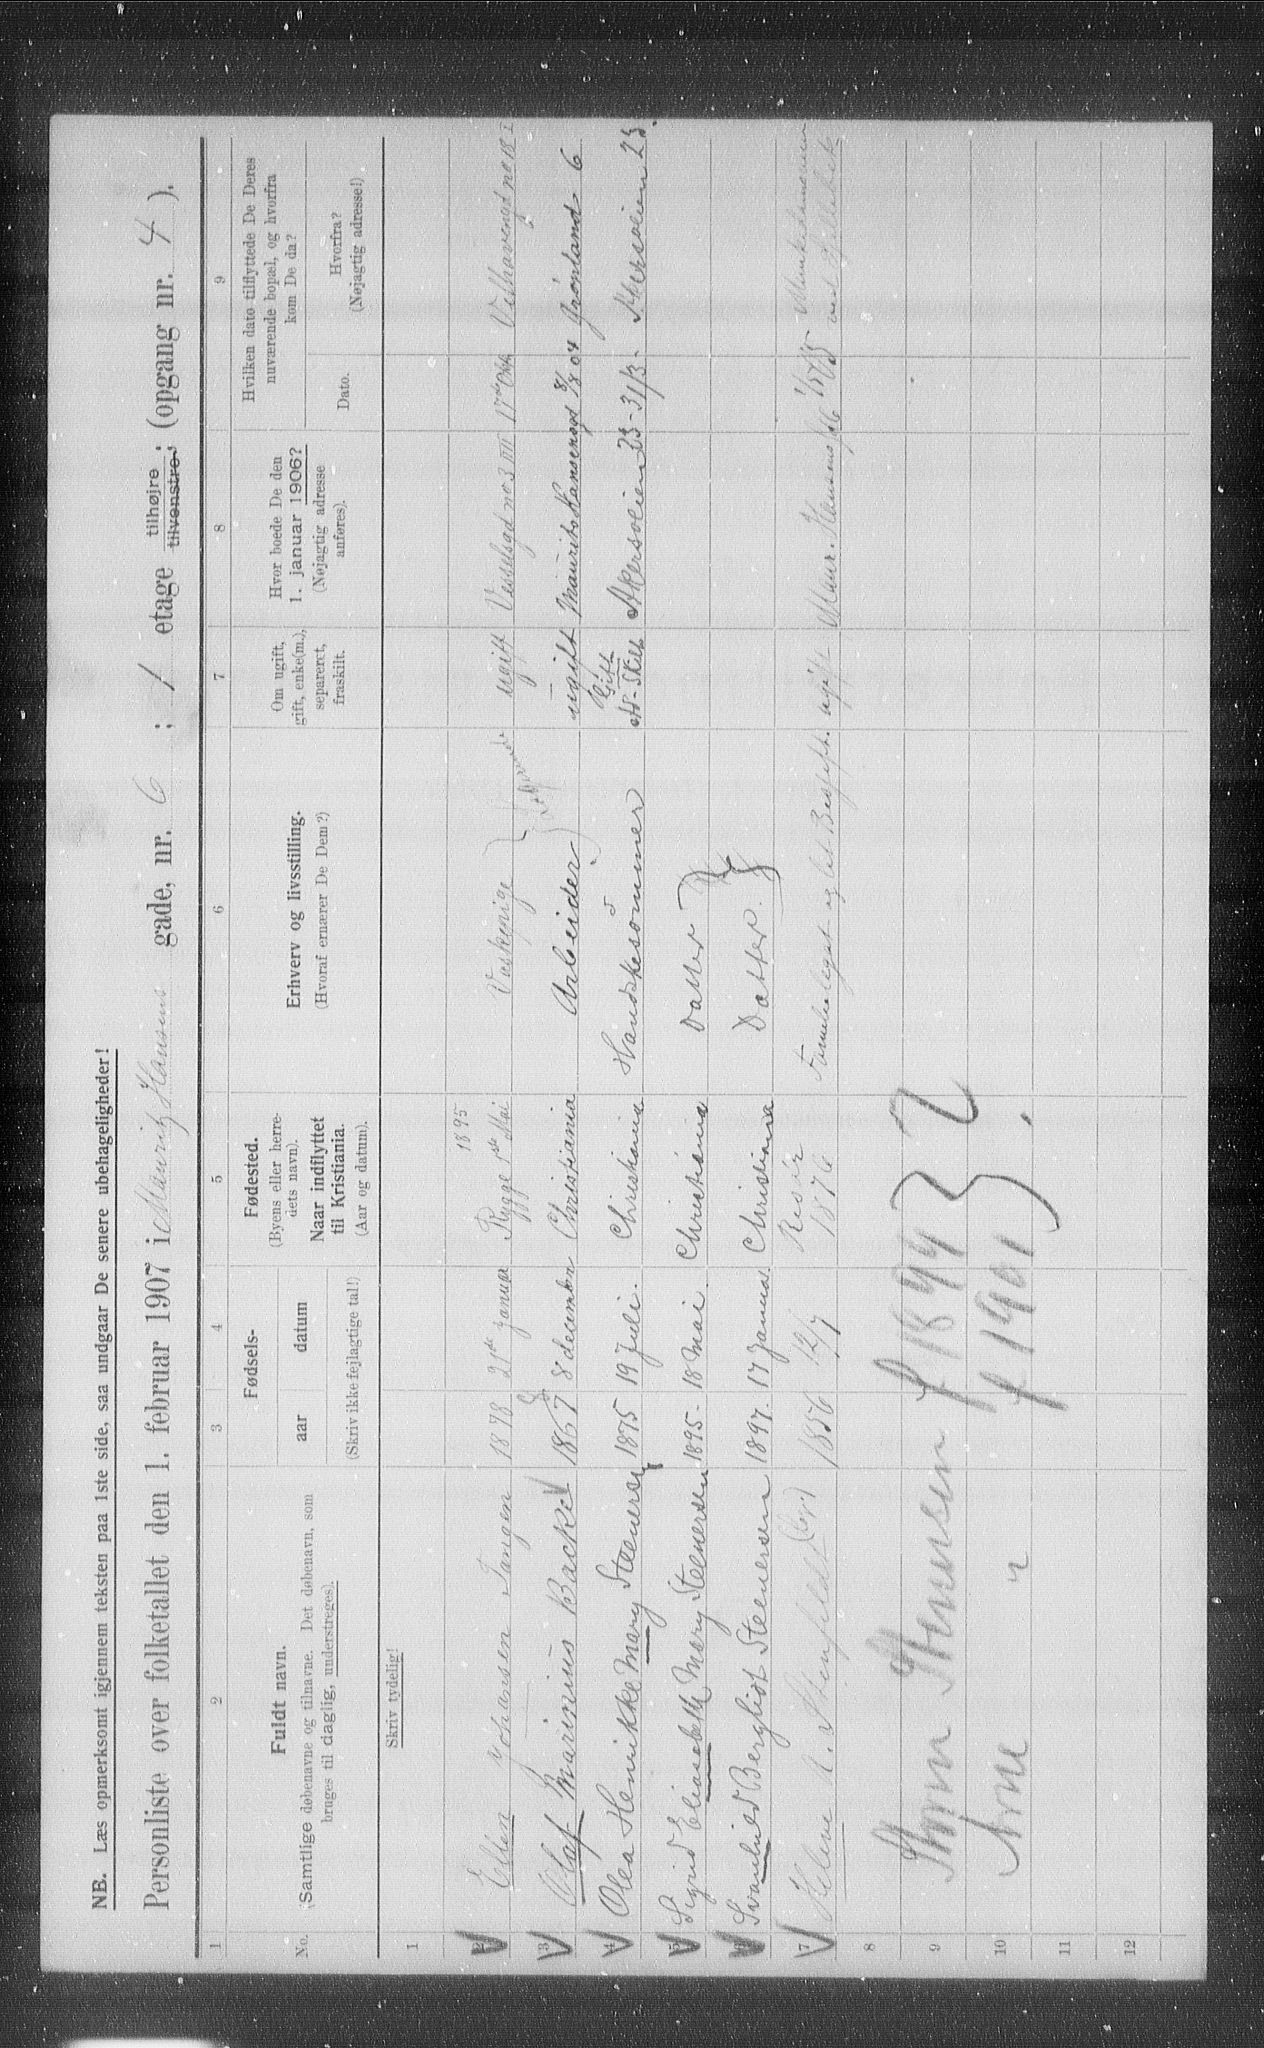 NB. Læs opmerksomt igjennem teksten paa 1ste side, saa undgaar De senere ubehageligheder!
Personliste over folketallet den 1. februar 1907 i Mauritz Hansens gade, nr. 6 ; 1 etage tilhøjre tilvenstre ; (opgang nr. 4 ).
1 2 3 4 5 6 7 8 9
No.
Fuldt navn.
(Samtlige døbenavne og tilnavne. Det døbenavn, som
bruges til daglig, understreges).
Fødsels-
aar datum
(Skriv ikke fejlagtige tal!)
Fødested.
(Byens eller herre-
dets navn).
Naar indflyttet
til Kristiania.
(Aar og datum).
Erhverv og livsstilling.
(Hvoraf ernærer De Dem?)
Om ugift,
gift, enke(m.),
separeret,
fraskilt.
Hvor boede De den
1. januar 1906?
(Nøjagtig adresse
anføres).
Hvilken dato tilflyttede De Deres
nuværende bopæl, og hvorfra
kom De da?
Dato.
Hvorfra?
(Nøjagtig adresse!)
Skriv tydelig!
1
1895
2 Ellen Johansen Tangen 1878 21de januar Rygge 1ste Mai Vaskepige ugift Vesselsgd no 3 III 17de Okt Vibhavengd no 18 I
3 Olaf Marinius Backe 1867 8 december Christiania Arbeider ugift Maurits Hansensgd 8/8 04 Grønland 6
4 Olea Henrikke Mary Steenersen 1875 19 Juli. Christiania Handskesømmer Gift Akersveien 23 - 31/3. Akersveien 23.
5 Sigrid Eliasabeth Mary Steenersen 1895. 18 Mai. Christiania Datter
6 Svanhild Bergliot Steenersen 1897. 17 Januar. Christiania Datter.
7 Helene 1856 12/7 Risør 1876 Familielegat og lit Bedrift. ugift Maur. Hansens g 6
8
9 Thorn Stenersen f 1899
10 Arne " f 1901.
11
12